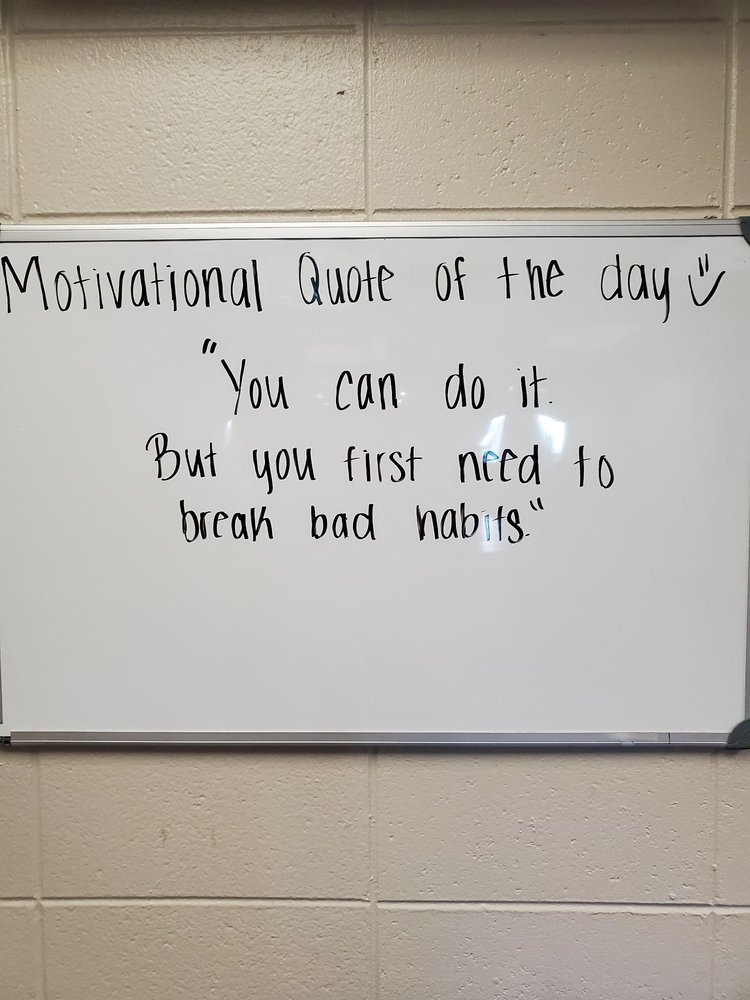 Motivational Quote of the day
"You can do it.
But you first need to
break bad habits."